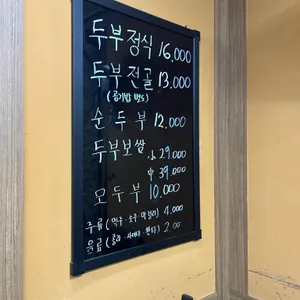 두부정식 16,000
두부전골 13,000
(공기밥 별도)
순두부 12,000
두부보쌈 小 29,000
中 39,000
모두부 10,000
주류(맥주·소주·막걸리) 4,000
음료(콜라·사이다·환타) 2,00